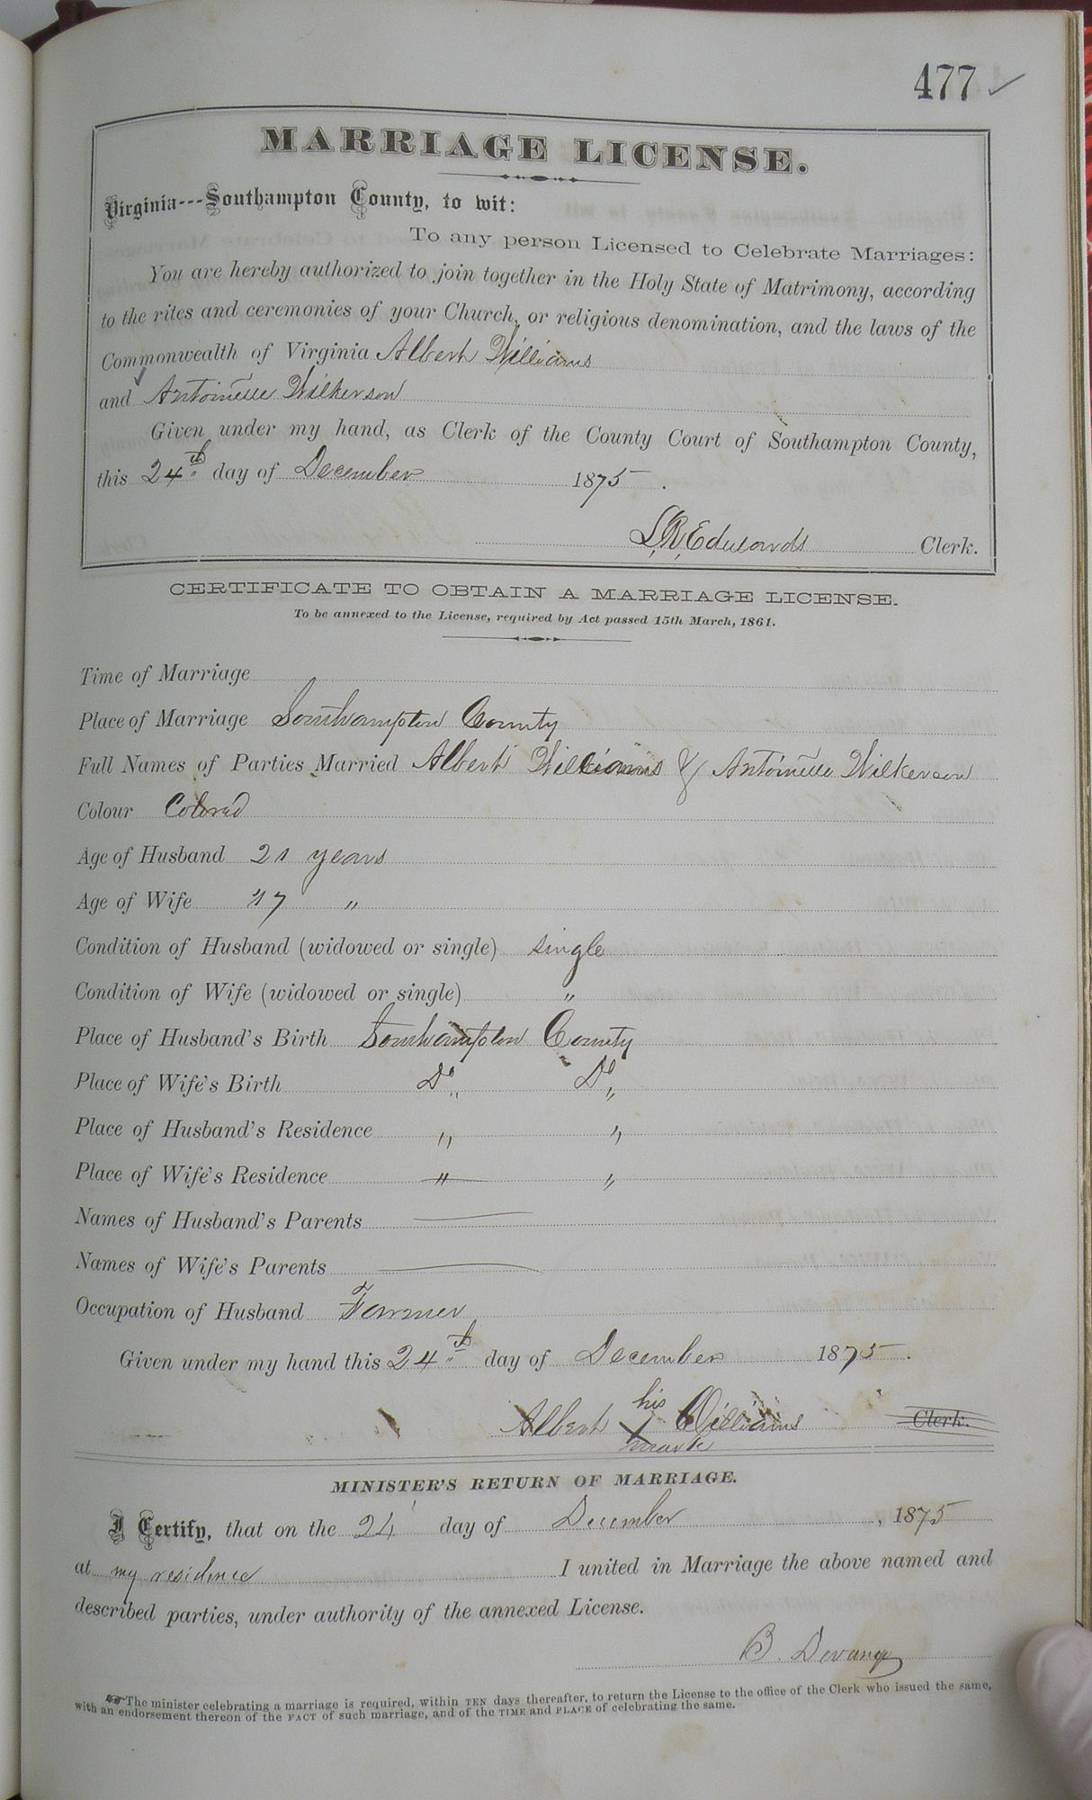 477 ✓
MARRIAGE LICENSE.
Virginia---Southampton County, to wit:
To any person Licensed to Celebrate Marriages:
You are hereby authorized to join together in the Holy State of Matrimony, according
to the rites and ceremonies of your Church, or religious denomination, and the laws of the
Commonwealth of Virginia Albert Williams
and Antoinette Wilkerson
Given under my hand, as Clerk of the County Court of Southampton County,
this 24th day of December 1875.
L,R,Edwards Clerk.
CERTIFICATE TO OBTAIN A MARRIAGE LICENSE.
To be annexed to the License, required by Act passed 15th March, 1861.
Time of Marriage
Place of Marriage Southampton County
Full Names of Parties Married Albert Williams & Antoinette Wilkerson
Colour Colored
Age of Husband 21 years
Age of Wife 17 "
Condition of Husband (widowed or single) single
Condition of Wife (widowed or single) "
Place of Husband's Birth Southampton County
Place of Wife's Birth Do Do
Place of Husband's Residence " "
Place of Wife's Residence " "
Names of Husband's Parents
Names of Wife's Parents
Occupation of Husband Farmer
Given under my hand this 24th day of December 1875.
his
Albert X Williams Clerk.
mark
MINISTER'S RETURN OF MARRIAGE.
I Certify, that on the 24 day of December, 1875
at my residence I united in Marriage the above named and
described parties, under authority of the annexed License.
B.
The minister celebrating a marriage is required, within TEN days thereafter, to return the License to the office of the Clerk who issued the same,
with an endorsement thereon of the FACT of such marriage, and of the TIME and PLACE of celebrating the same.